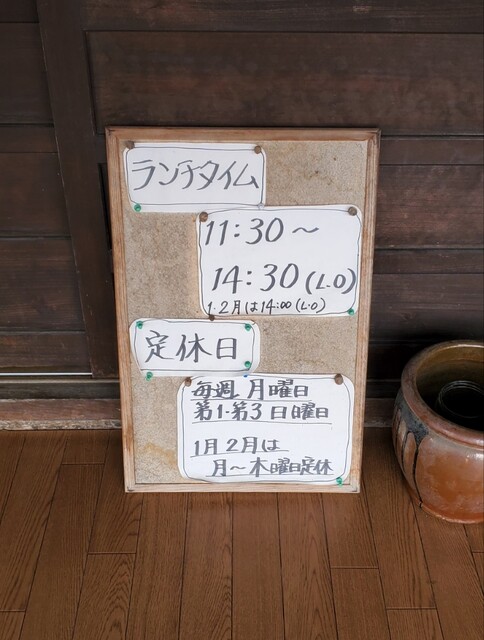 ランチタイム
11:30〜
14:30(L.O)
1.2月は14:00(L.O)
定休日
毎週 月曜日
第1・第3日曜日
1月2月は
月〜木曜日定休